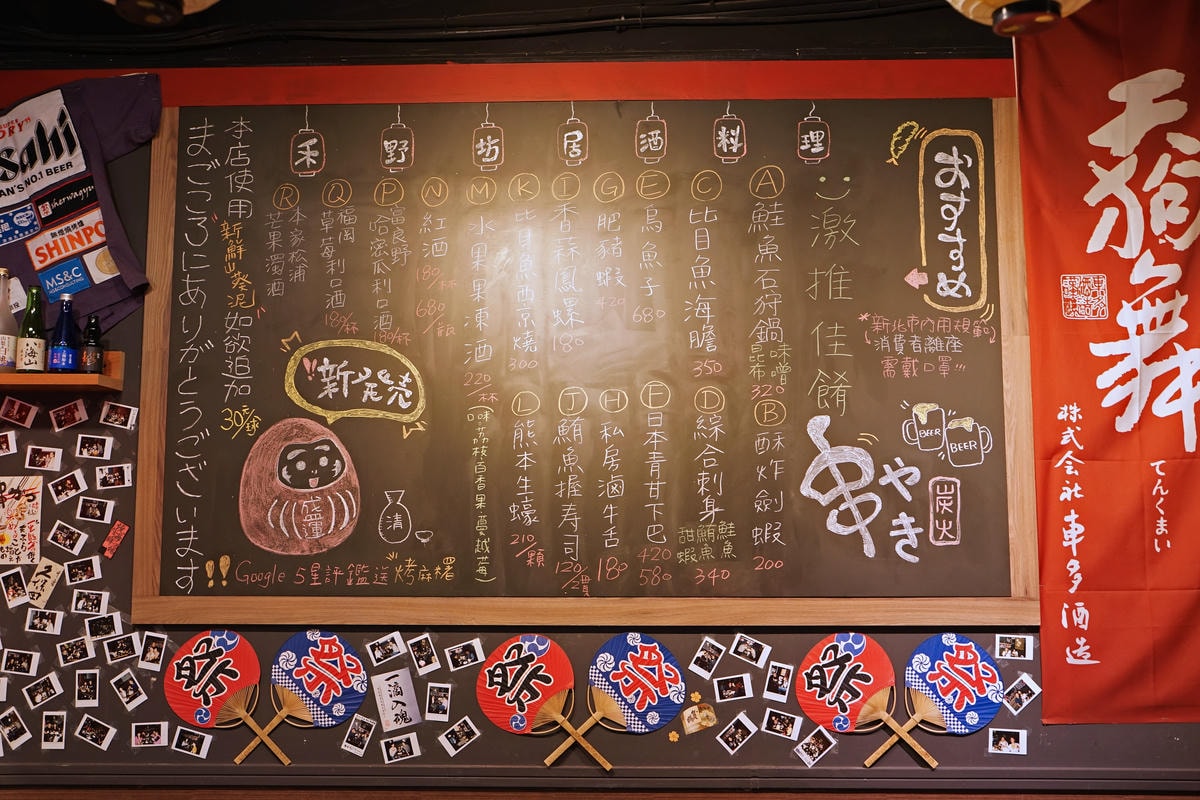 禾野坊居酒料理
おすすめ
新北市內用規範
消費者離座
需戴口罩!!!
激推佳餚
BEER
BEER
串やき
炭火
A 鮭魚石狩鍋 味噌 昆布 320
B 酥炸劍蝦 200
C 比目魚海膽 350
D 綜合刺身 鮭魚 鮪魚 甜蝦 340
E 烏魚子 680
F 日本青甘下巴 420 580
G 肥豬蝦 420
H 私房滷牛舌 180
I 香蒜鳳螺 180
J 鮪魚握壽司 120/2貫
K 比目魚西京燒 300
L 熊本生蠔 210/顆
M 水果果凍酒 220/杯 (口味 荔枝 百香果 蔓越莓)
N 紅酒 180/杯 680/瓶
P 富良野 哈密瓜利口酒 189/杯
Q 福岡 草莓利口酒 189/杯
R 本家松浦 芒果濁酒
新發売
盛運
清
本店使用"新鮮山葵泥"如欲追加 30元/球
まごころにありがとうございます
!! Google 5星評鑑送烤麻糬
Asahi
JAPAN'S NO.1 BEER
sherwagyu
SHINPO
MS&C
八海山
天狗舞
てんぐまい
株式会社車多酒造
祭
祭
一滴入魂
祭
祭
祭
祭